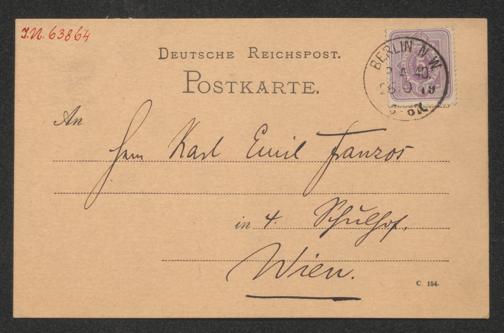 I.N. 63864
DEUTSCHE REICHSPOST.
POSTKARTE.
BERLIN N.W.
An
Herrn Karl Emil Franzos
in 4. Schulhof.
Wien.
C. 154.